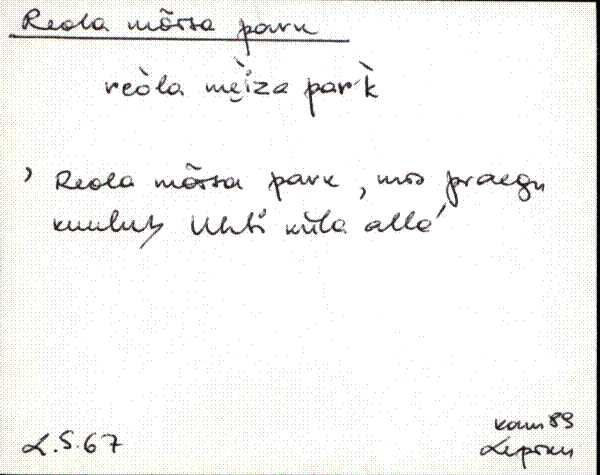 Reola mõisa park
reòla mẹi̇za par̀k̀
' Reola mõisa park, mis praegu
kuulub Uhti küla alla'
L.S.67
Kam 89